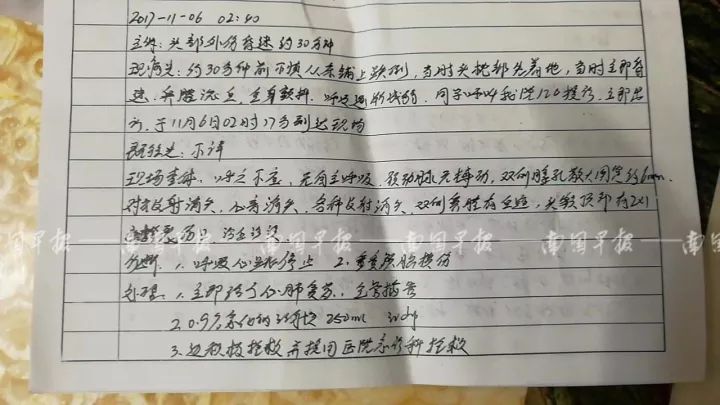 2017-11-06 02:40
主诉:头部外伤昏迷约30分钟
现病史:约30分钟前不慎从床铺上跌倒,当时头枕部先着地,当时立即昏
迷,鼻腔流血,全身颤抖,呼吸逐渐减弱,同学呼叫我院120接诊,立即出
诊,于11月6日02时17分到达现场
既往史:不详
现场查体:呼之不应,无自主呼吸,颈动脉无搏动,双侧瞳孔散大固定约6mm,
对光反射消失,心音消失,各种反射消失,双侧鼻腔有血迹,头颅顶部有2×1
南国早报 南国早报 南国早报
诊断:1.呼吸心跳停止 2.重度颅脑损伤
处理:1.立即给予心肺复苏,气管插管
2.0.9%氯化钠注射液 250ml ivdrip
3.边积极抢救并接回医院急诊科抢救